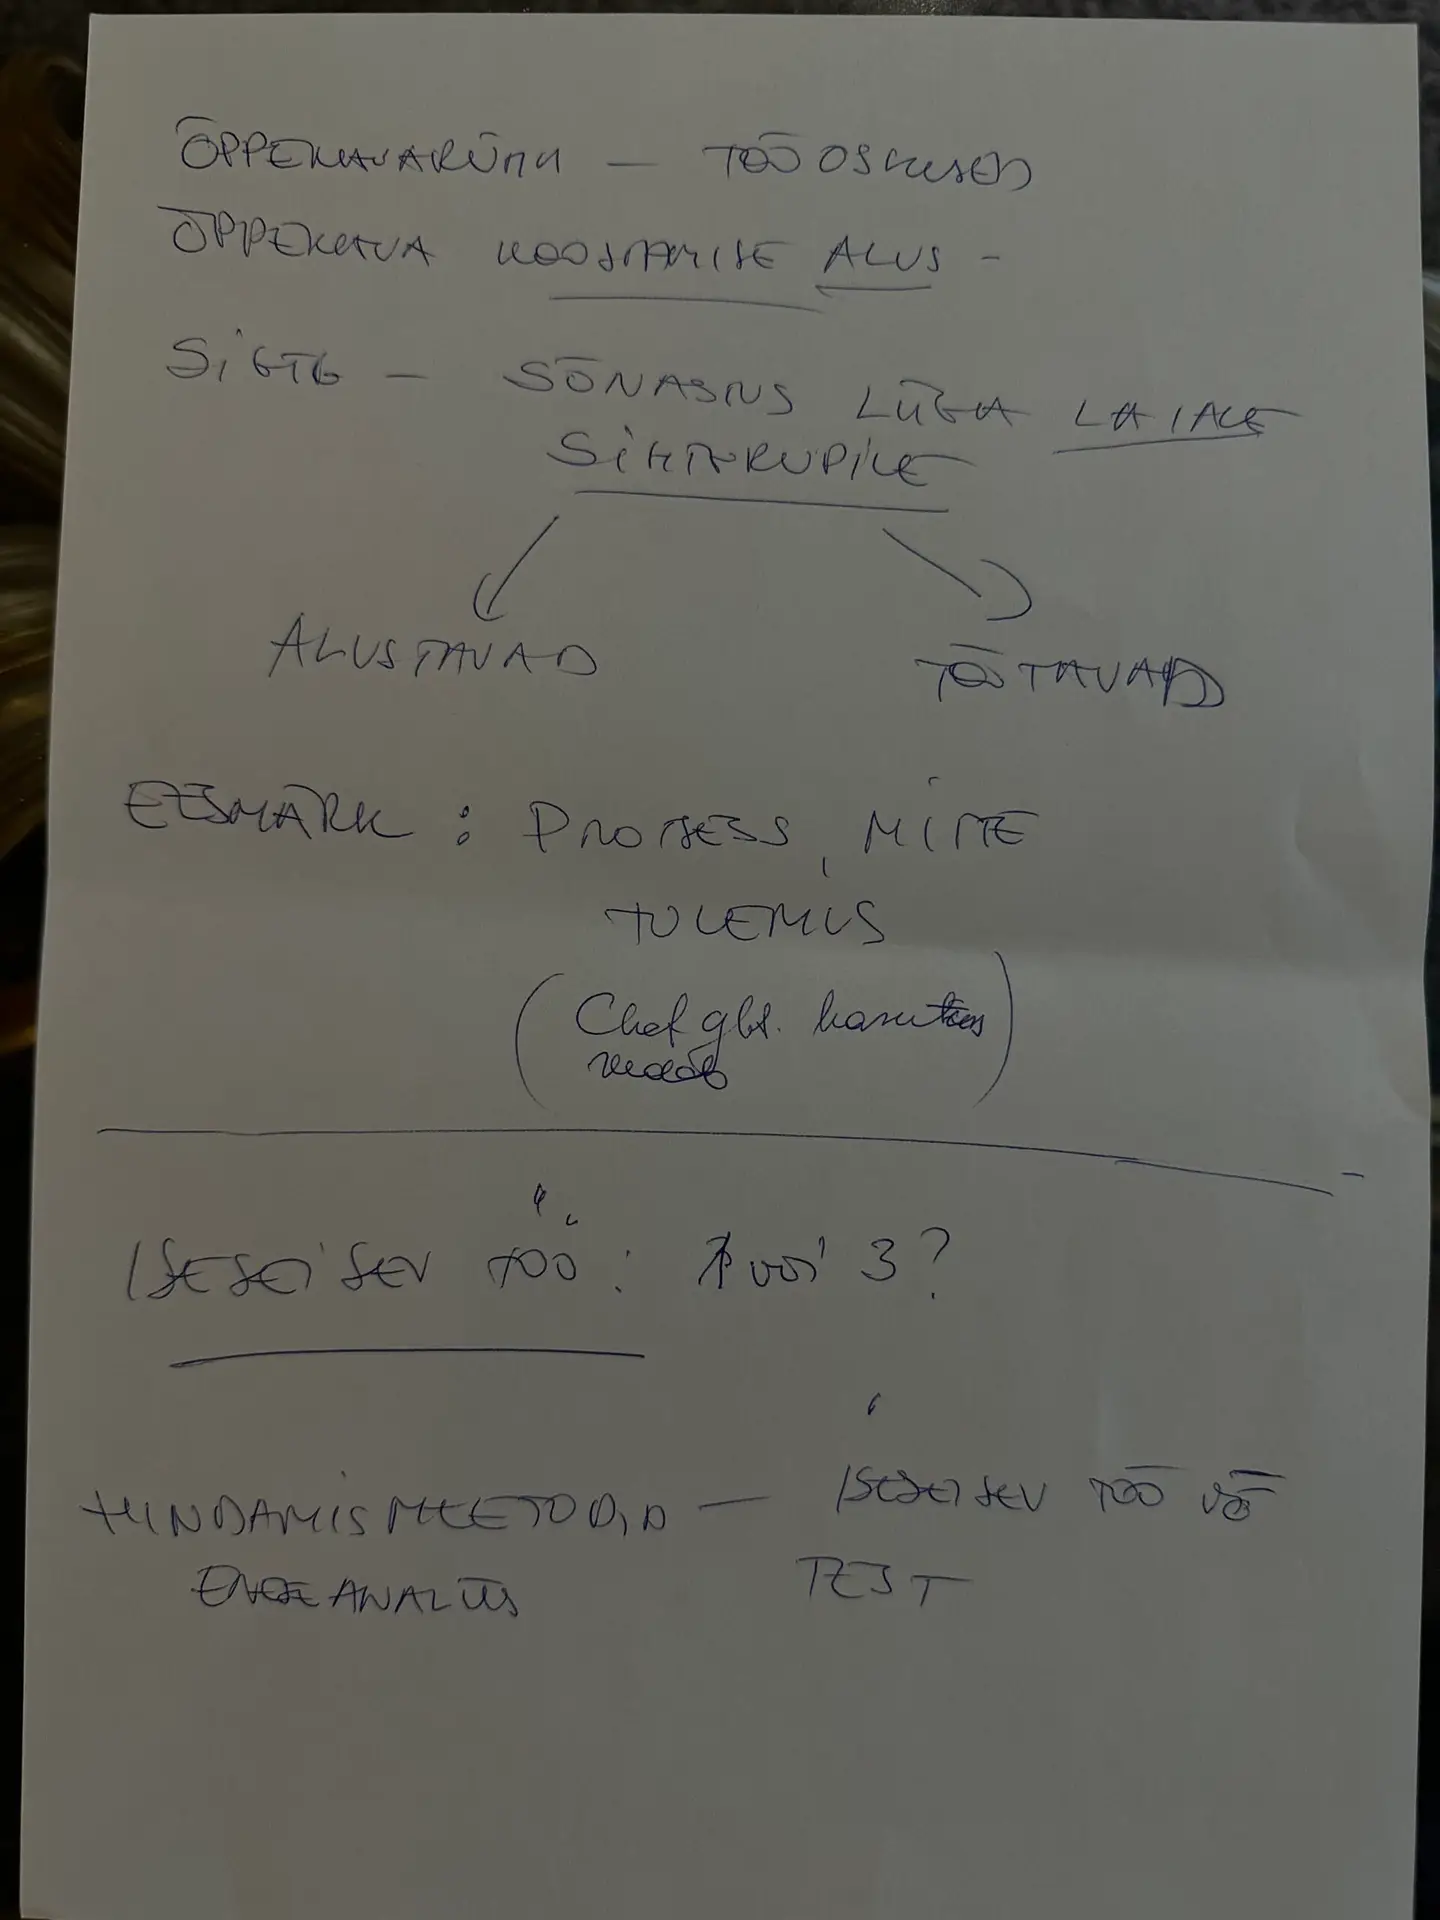 ÕPPEKAVARÜHM — TÖÖOSKUSED
ÕPPEKAVA KOOSTAMISE ALUS -
SIHTG — SÕNASTUS LIIGA LAIALE
SIHTGRUPILE
ALUSTAVAD TÖÖTAVAD
EESMÄRK : PROTSESS, MITTE
TULEMUS
(Chat gbt. kasutas
seda)
ISESEISEV TÖÖ : 1 või 3?
HINDAMISMEETODID — ISESEISEV TÖÖ või
ENESEANALÜÜS TEST